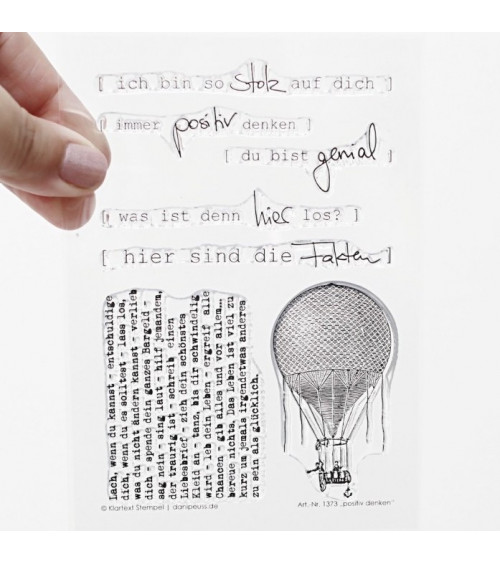 [ ich bin so stolz auf dich ]
[ immer positiv denken ]
[ du bist genial ]
[ was ist denn hier los? ]
[ hier sind die Fakten ]
Lach, wenn du kannst - entschuldige
dich, wenn du es solltest - lass los,
was du nicht ändern kannst - verlieb
dich - spende dein ganzes Bargeld -
sag nein - sing laut - hilf jemandem,
der traurig ist - schreib einen
Liebesbrief - zieh dein schönstes
Kleid an - tanz, bis dir schwindelig
wird - leb dein Leben - ergreif alle
Chancen - gib alles und vor allem...
bereue nichts. Das Leben ist viel zu
kurz um jemals irgendetwas anderes
zu sein als glücklich.
© Klartext Stempel | danipeuss.de
Art.-Nr. 1373 „positiv denken"